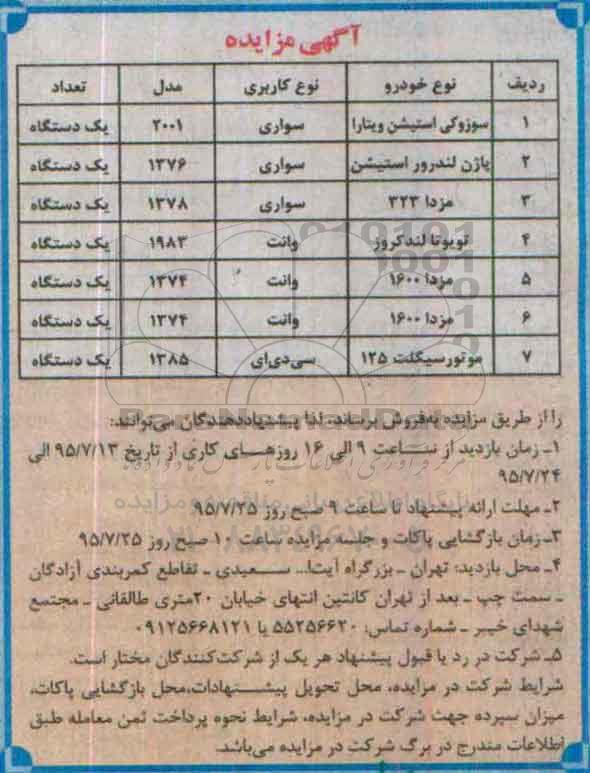 آگهی مزایده
ردیف نوع خودرو نوع کاربری مدل تعداد
۱ سوزوکی استیشن ویتارا سواری ۲۰۰۱ یک دستگاه
۲ پاژن لندرور استیشن سواری ۱۳۷۶ یک دستگاه
۳ مزدا ۳۲۳ سواری ۱۳۷۸ یک دستگاه
۴ تویوتا لندکروز وانت ۱۹۸۳ یک دستگاه
۵ مزدا ۱۶۰۰ وانت ۱۳۷۴ یک دستگاه
۶ مزدا ۱۶۰۰ وانت ۱۳۷۴ یک دستگاه
۷ موتورسیگلت ۱۲۵ سی‌دی‌ای ۱۳۸۵ یک دستگاه
را از طریق مزایده به‌فروش برساند، لذا پیشنهاددهندگان می‌توانند:
۱ـ زمان بازدید از ساعت ۹ الی ۱۶ روزهای کاری از تاریخ ۹۵/۷/۱۳ الی
۹۵/۷/۲۴
۲ـ مهلت ارائه پیشنهاد تا ساعت ۹ صبح روز ۹۵/۷/۲۵
۳ـ زمان بازگشایی پاکات و جلسه مزایده ساعت ۱۰ صبح روز ۹۵/۷/۲۵
۴ـ محل بازدید: تهران ـ بزرگراه آیت‌ا... سعیدی ـ تقاطع کمربندی آزادگان
ـ سمت چپ ـ بعد از تهران کانتین انتهای خیابان ۲۰متری طالقانی ـ مجتمع
شهدای خیبر ـ شماره تماس: ۵۵۲۵۶۶۲۰ یا ۰۹۱۲۵۶۶۸۱۲۱
۵ـ شرکت در رد یا قبول پیشنهاد هر یک از شرکت‌کنندگان مختار است.
شرایط شرکت در مزایده، محل تحویل پیشنهادات،محل بازگشایی پاکات،
میزان سپرده جهت شرکت در مزایده، شرایط نحوه پرداخت ثمن معامله طبق
اطلاعات مندرج در برگ شرکت در مزایده می‌باشد.